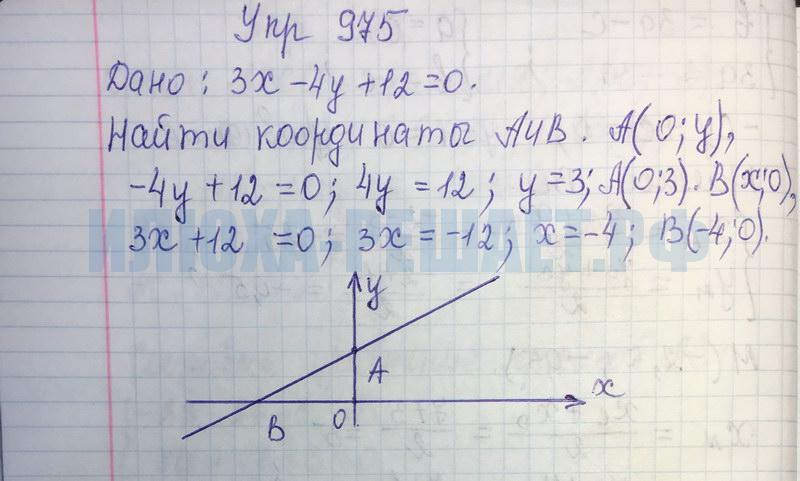 Упр 975
Дано: 3x - 4y + 12 = 0.
Найти координаты А и В. А(0; y),
-4y + 12 = 0; 4y = 12; y = 3; А(0; 3). В(x; 0),
3x + 12 = 0; 3x = -12; x = -4; В(-4; 0).
ИЛЮХА-РЕШАЕТ.РФ
y
A
x
B
0